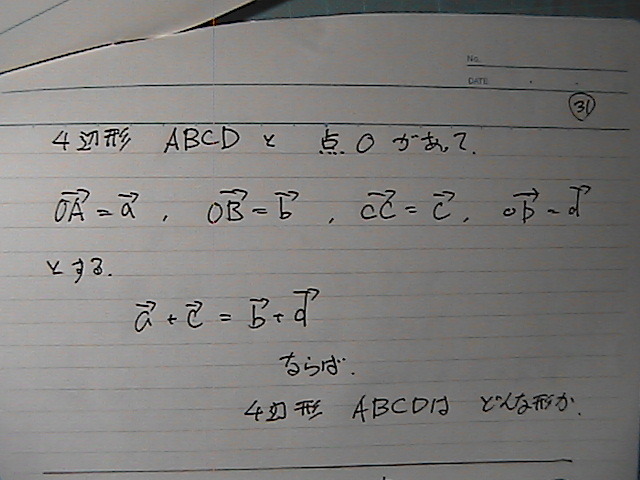 No.
DATE
31
4辺形 ABCDと 点Oがあって.
OA→=a→, OB→=b→, cC→=c→, OD→=d→
とする.
a→+c→=b→+d→
ならば.
4辺形 ABCDは どんな形か.